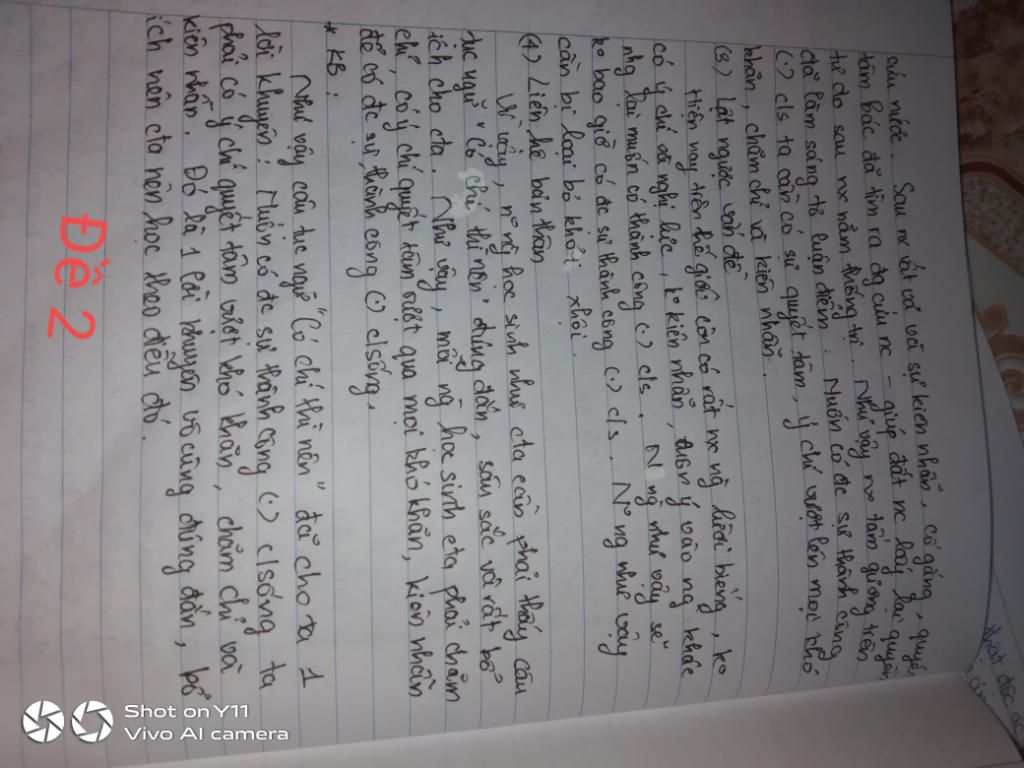 cứu nước. Sau nx vất vả và sự kiên nhẫn, cố gắng, quyết
tâm Bác đã tìm ra đg cứu nc - giúp đất nc lấy lại quyền
tự do sau nx năm thống trị. Như vậy nx tấm gương trên
đã làm sáng tỏ luận điểm: Muốn có đc sự thành công
(.) c/s ta cần có sự quyết tâm, ý chí vượt lên mọi khó
khăn, chăm chỉ và kiên nhẫn.
(3) Lật ngược vấn đề
Hiện nay trên thế giới còn có rất nx ng lười biếng, ko
có ý chí và nghị lực, k kiên nhẫn, ý vào ng khác
nhg lại muốn có thành công (.) c/s. N ng như vậy sẽ
ko bao giờ có đc sự thành công (.) c/s. N ng như vậy
cần bị loại bỏ khỏi xã hội.
(4) Liên hệ bản thân
Vì vậy, n ng học sinh như cta cần phải thấy câu
tục ngữ "Có chí thì nên" đúng đắn, sâu sắc và rất bổ
ích cho cta. Như vậy, mỗi ng học sinh cta phải chăm
chỉ, có ý chí quyết tâm vượt qua mọi khó khăn, kiên nhẫn
để có đc sự thành công (.) c/sống.
* KB:
Như vậy câu tục ngữ "Có chí thì nên" đã cho ta 1
lời khuyên: Muốn có đc sự thành công (.) c/sống ta
phải có ý chí quyết tâm vượt khó khăn, chăm chỉ và
kiên nhẫn. Đó là 1 lời khuyên vô cùng đúng đắn, bổ
ích nên cta nên học theo điều đó.
Đề 2
Shot on Y11
Vivo AI camera